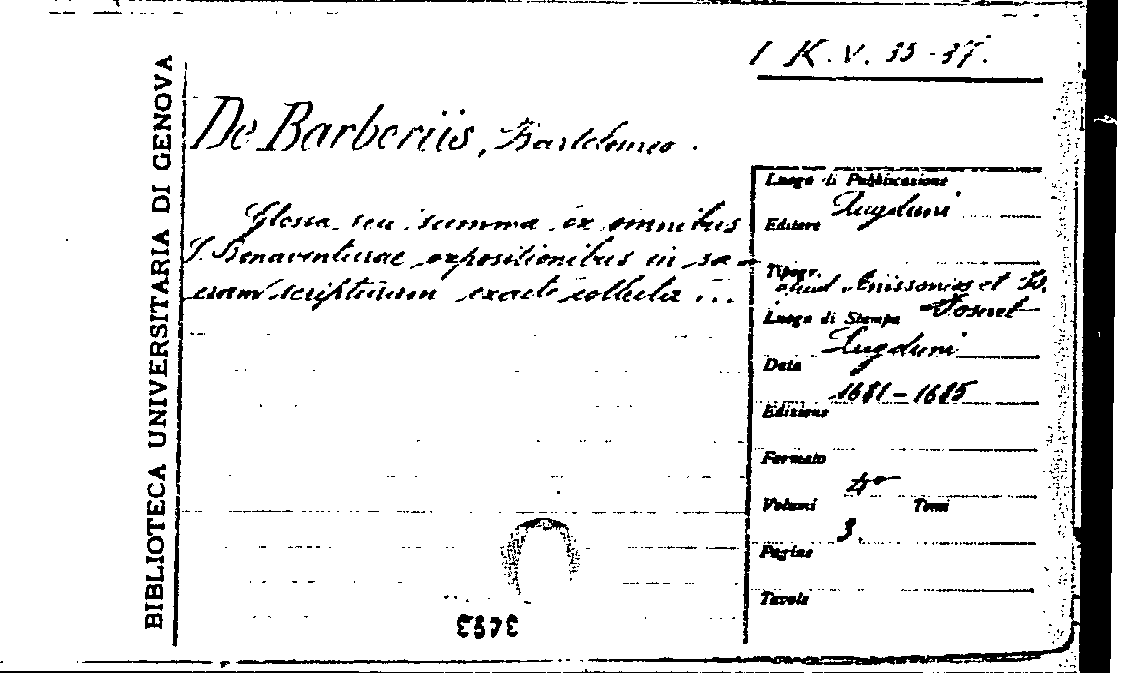 1 K.V. 35-37.
BIBLIOTECA UNIVERSITARIA DI GENOVA
De Barberiis, Bartolomeo.
Glossa seu summa ex omnibus
S. Bonaventurae expositionibus in sa-
cram scripturam exacte collecta ...
Luogo di Pubblicazione
Lugduni
Editore
Tipogr.
apud Anissonios et
Luogo di Stampa
Lugduni
Data
1681-1685
Edizione
Formato
4°
Volumi Tomi
3.
Pagine
Tavole